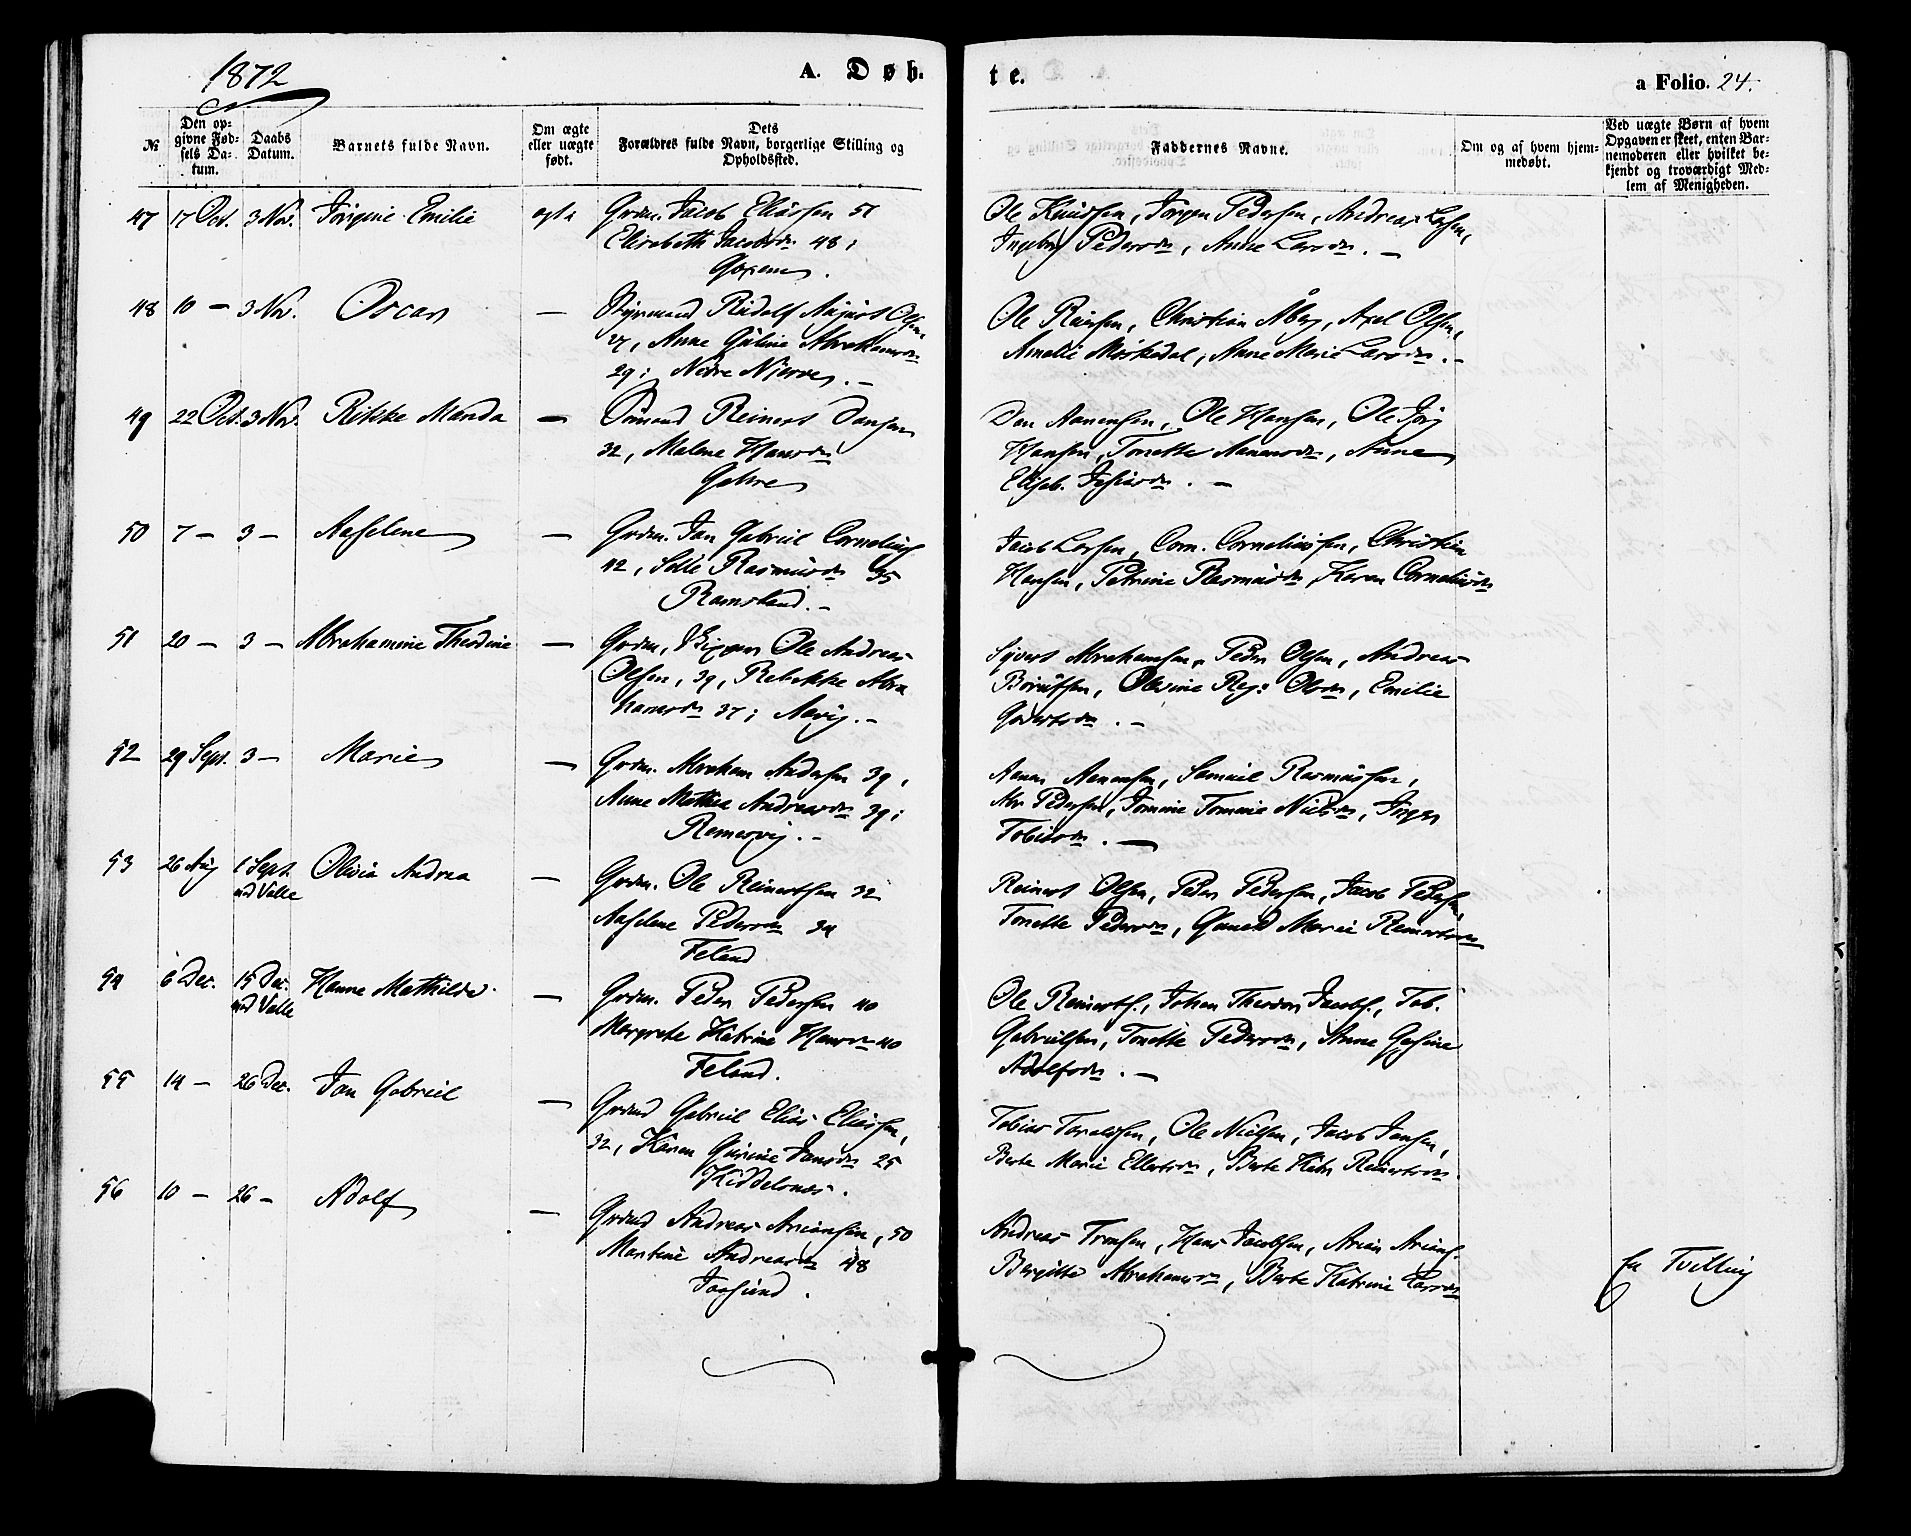 1872
A. Døb-
te.
a Folio. 24.
№
Den opgivne Fødsels Datum.
Daabs Datum.
Barnets fulde Navn.
Om ægte eller uægte født.
Dets Forældres fulde Navn, borgerlige Stilling og Opholdssted.
Faddernes Navne.
Om og af hvem hjemmedøbt.
Ved uægte Børn af hvem Opgaven er skeet, enten Barnemoderen eller hvilket bekjendt og troværdigt Medlem af Menigheden.
47 17 Oct. 3 Nov. Jörgine Emilie ægte Grdm. Jacob Eliassen 51
Elisabeth Jacobsdr 48;
Ole Knudsen, Jörgen Pedersen, Andreas Larsen,
Ingeborg Pedersdr, Anne Larsdr. –
48 10 – 3 Nov. Oscar – Rudolf August Olsen
27, Anne Guline Abrahamsdr
29; Nedre .–
Ole Reiersen, Christian Åberg, Axel Olsen,
Amalie , Anne Marie Larsdr. –
49 22 Oct. 3 Nov. Rikke Manda – Reinert Danjen
32, Malene Hansdr
Dan Aanensen, Ole Hansen, Ole Jörg
Hansen, Tonette Aanensdr, Anne
Elisab. . –
50 7 – 3 – Aaselene – Grdm. Jan Gabriel Corneliusf
42, Rasmusdr 35
Ramsland. –
Jacob Larsen, Corn. Corneliussen, Christian
Hansen, Petrine Rasmusdr, Karen Corneliusdr
51 20 – 3 – Abrahamine Theodine – Grdm, Skipper Ole Andreas
Olsen, 39, Rebekke Abra
hamsdr 37; .–
Syvert Abrahamsen, Peder Olsen, Andreas
Berntsen, Olevine Reg: Olsdr, Emilie
. –
52 29 Sept. 3 – Marie – Grdm. Abraham Andersen 39,
Anne Mathea Andreasdr 39;
. –
Aanen Aanensen, Samuel Rasmussen,
Abr Pedersen, Tomine Nielsdr, Inger
Tobiasdr. –
53 26 Aug 1 Sept. Olivia Andrea – Grdm. Ole Reinertsen 32
ved Valle
Aaselene Pedersdr 34
Feland
Reinert Olsen, Peder Pedersen, Jacob Pedersen,
Tonette Pedersdr, Gunild Marie Reinertsdr
54 6 Dec. 15 Dec. Hanne Mathilde – Grdm. Peder Pedersen 40
ved Valle
Margrete Katrine Hansdr 40
Feland.
Ole Reinertf., Johan Theodor Jacobf., Tob.
Gabrielsen, Tonette Pedersdr, Anne Gesine
Adolfsdr. –
55 14 – 26 Dec. Jan Gabriel – Grdmd Gabriel Elias Eliassen,
32, Karen Gurine Jansdr 25
Kiddelsnes.
Tobias Toralfsen, Ole Nielsen, Jacob Jansen,
Berte Marie Ellertsdr, Berte Katr Reinertsdr.
56 10 – 26 – Adolf – Grdmd Andreas Ariansen, 50
Martine Andreasdr 48
Jaasund.
Andreas Tronsen, Hans Jacobsen, Arian Ariansf.
Bergitte Abrahamsdr, Berte Katrine Larsdr
En Tvilling